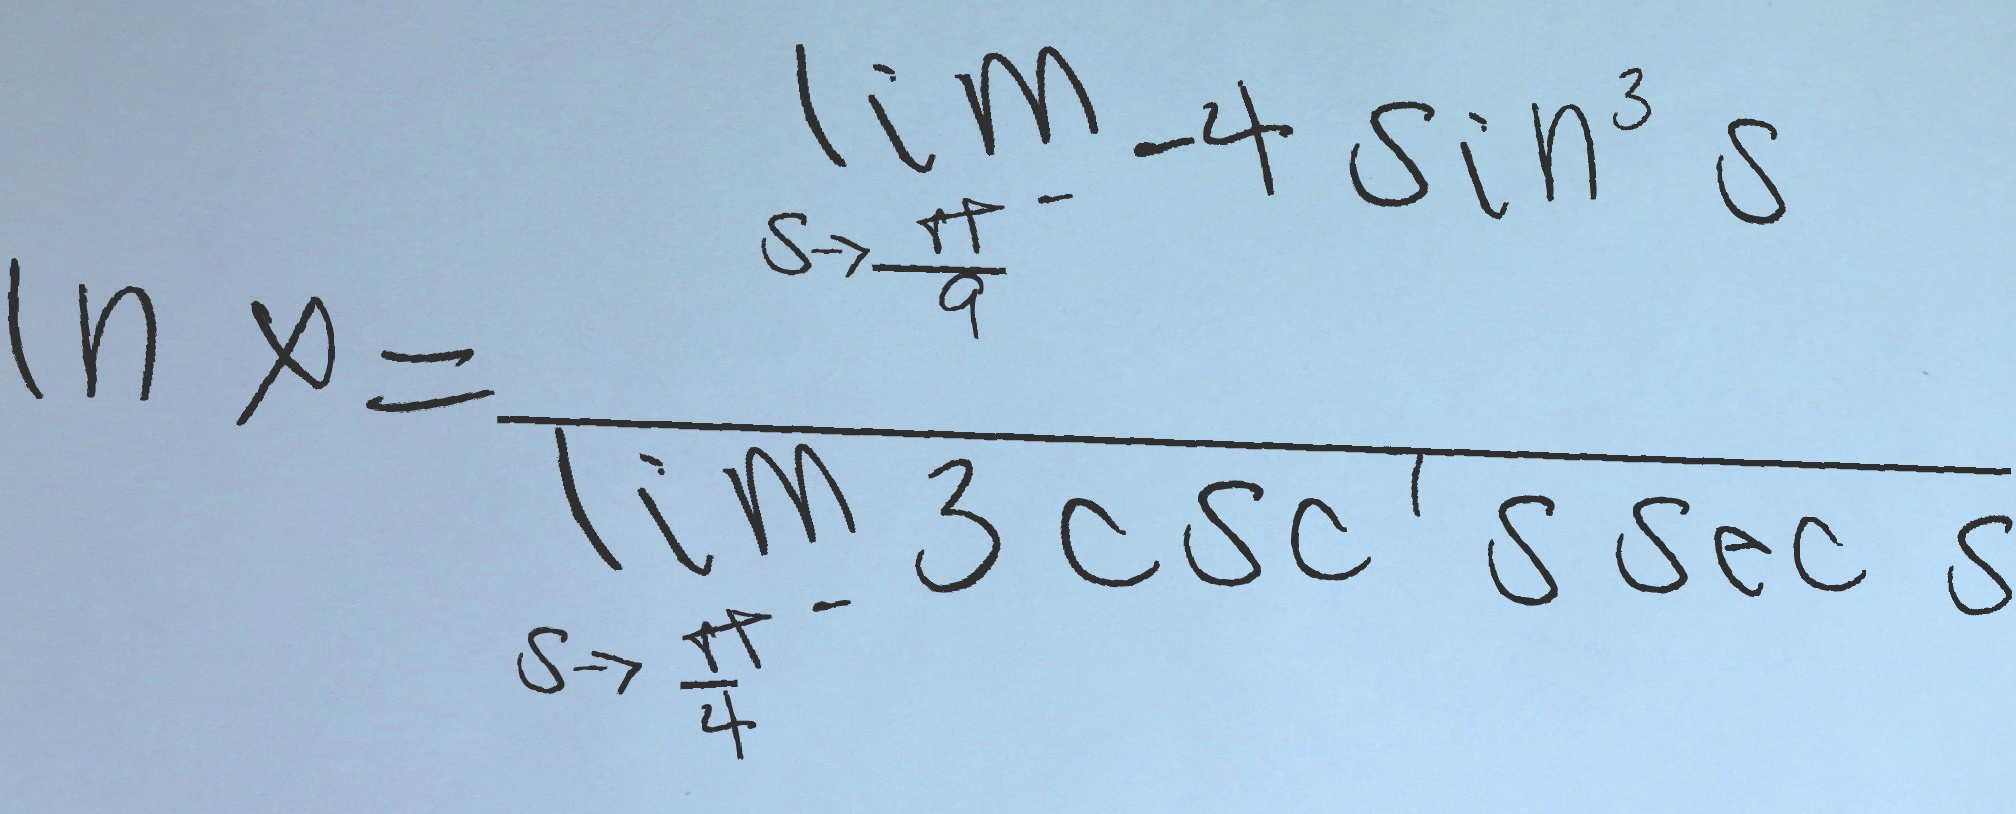 \ln x = \frac{\lim_{s \to \frac{\pi}{9}^{-}} -4 \sin^{3} s}{\lim_{s \to \frac{\pi}{4}^{-}} 3 \csc^{1} s \sec s}